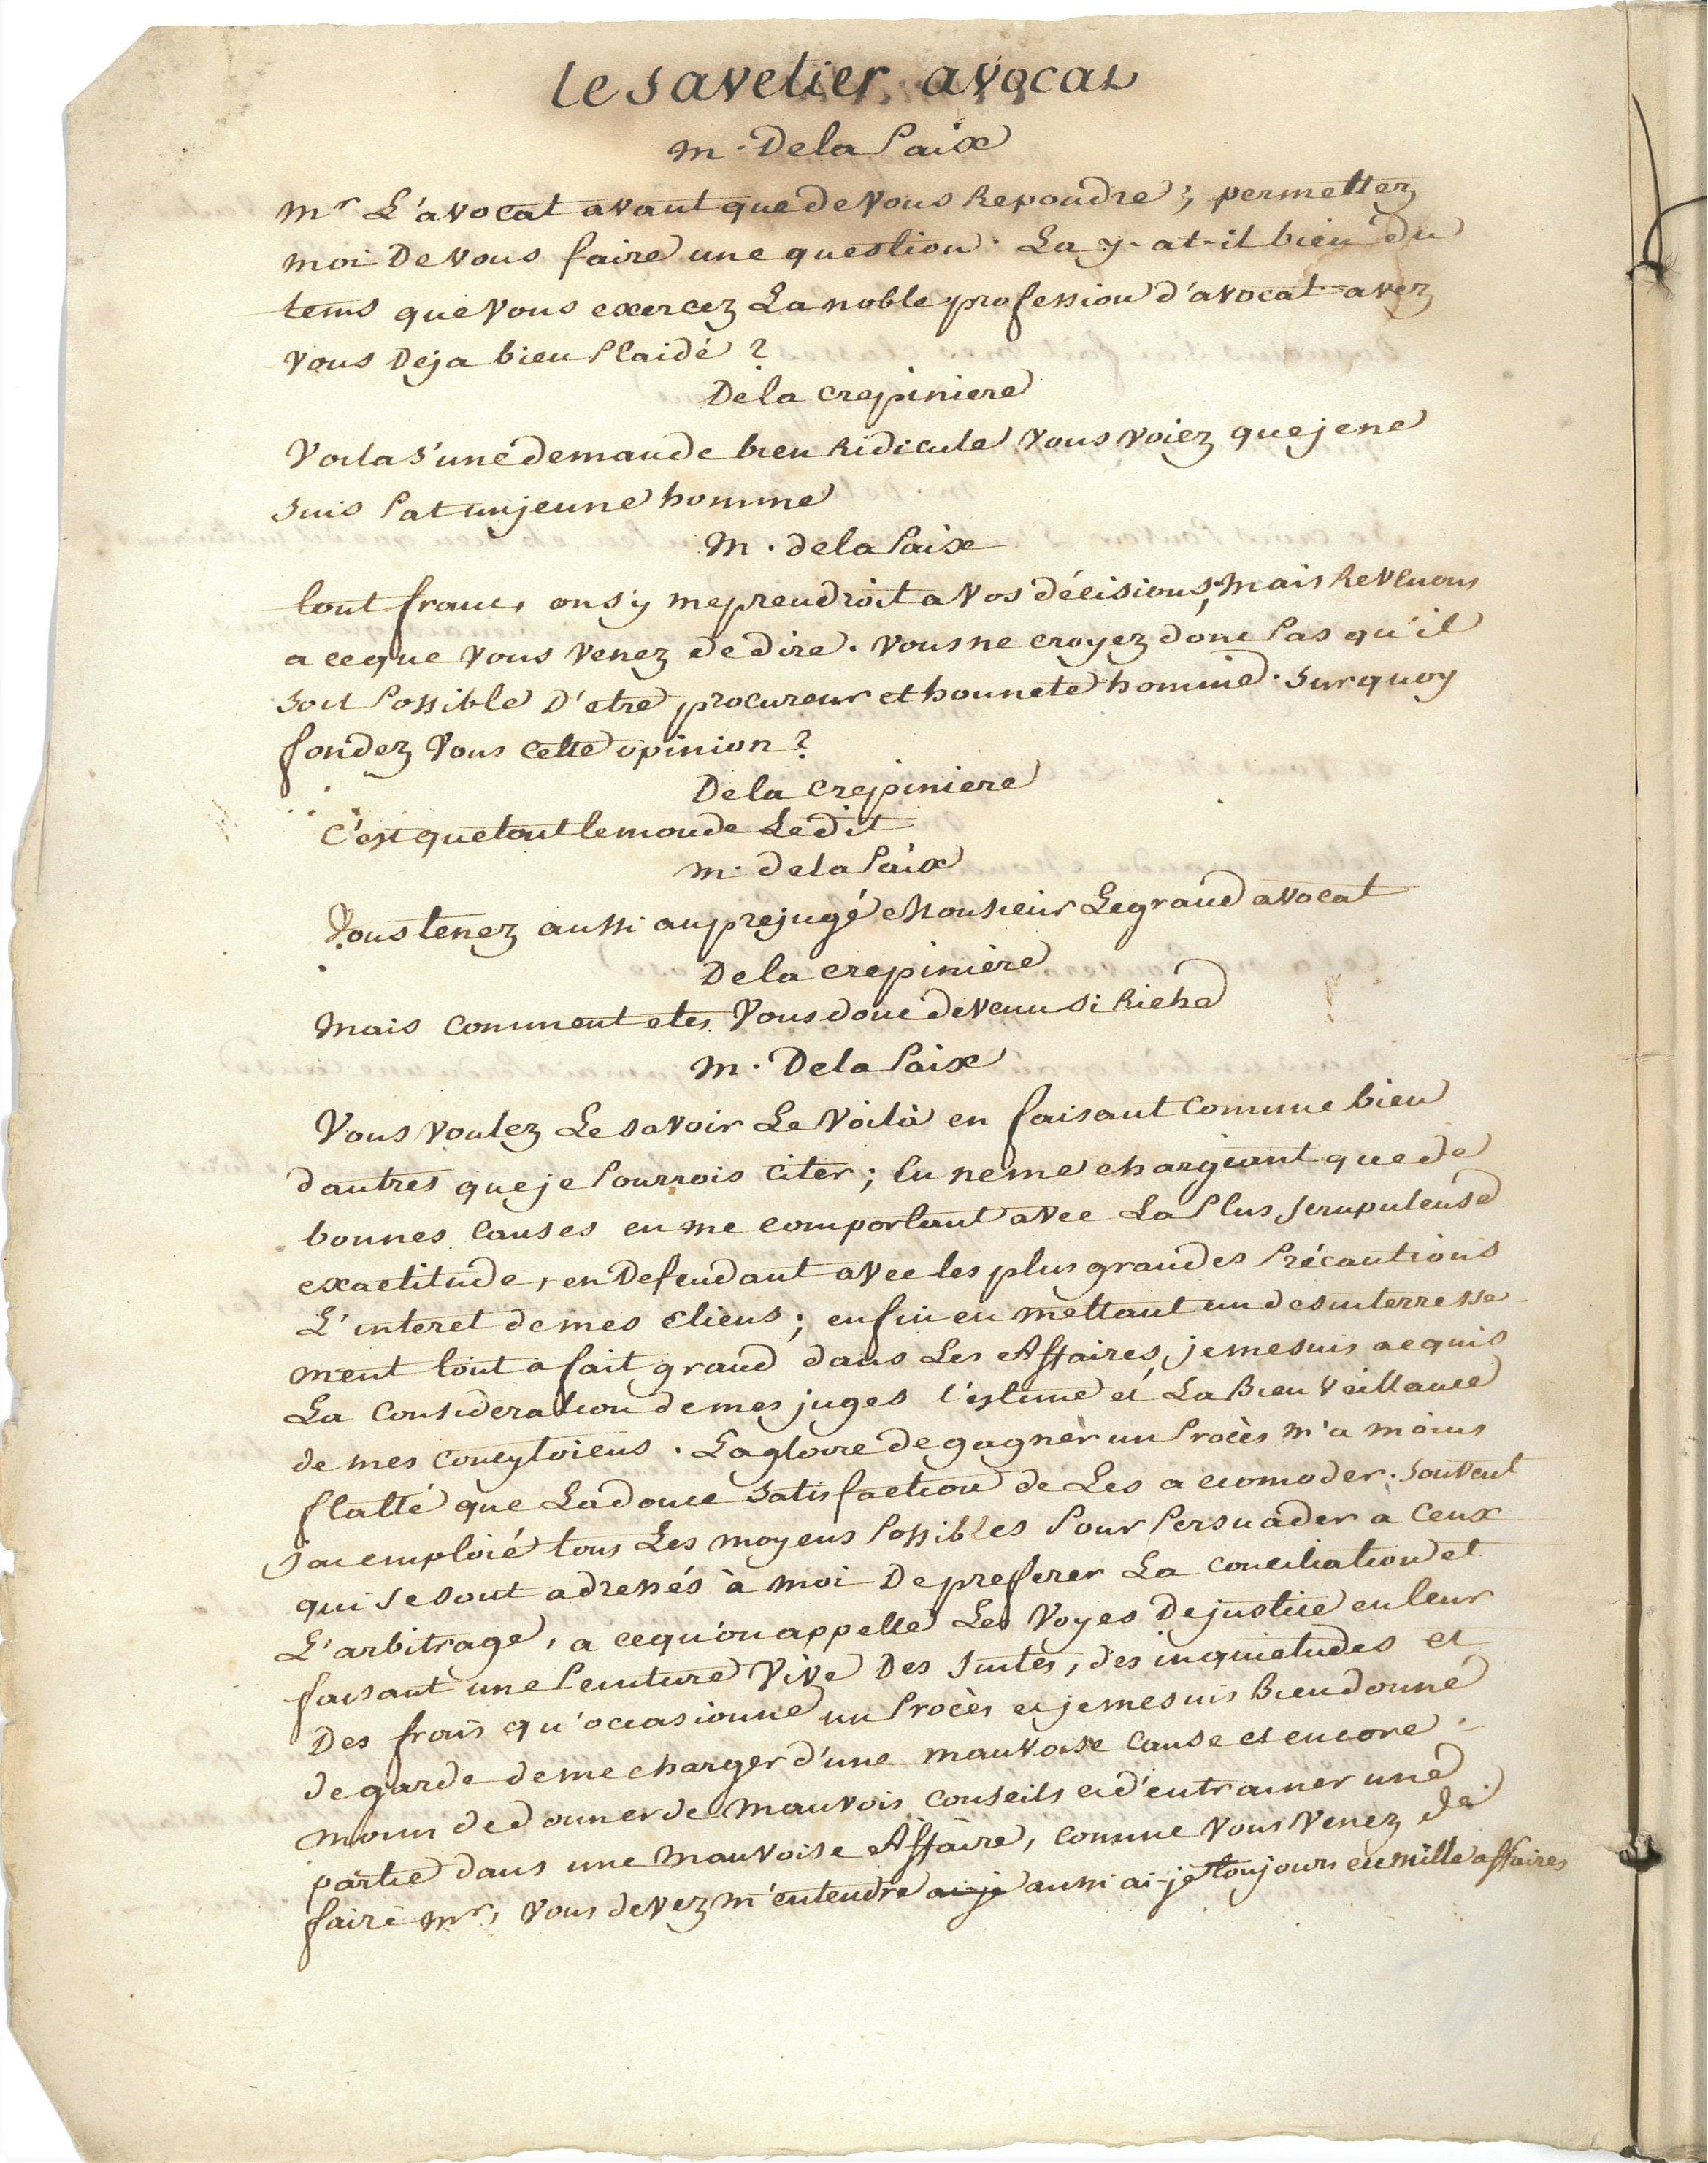 le savetier avocat
M. De la Paix
Mr L'avocat avant que de vous Repondre; permettez
moi De vous faire une question. La y-at-il bien du
tems que vous exercez La noble profession d'avocat avez
vous Deja bien Plaidé ?
De la crepiniere
Voila s'une demande bien Ridicule vous voiez que je ne
suis Pat un jeune homme
M. de la Paix
tout franc, on s'y meprendroit a vos décisions, Mais Revenons
a ceque vous venez de dire. vous ne croyez donc Pas qu'il
soit Possible D'etre procureur et honnete homme. sur quoy
fondez vous cette opinion ?
De la crepiniere
C'est que tout le monde Le dit
M. de la Paix
Vous tenez aussi au prejugé Monsieur Le grand avocat
De la crepiniere
Mais comment etes vous donc devenu si Riche
M. De la Paix
Vous voulez Le savoir Le voilà en faisant comme bien
d'autres que je Pourrois citer; En ne me chargeant que de
bonnes causes en me comportant avec La Plus scrupuleuse
exactitude, en Defendant avec les plus grandes Précautions
L'interet de mes cliens; enfin en mettant un desinterresse
ment tout a fait grand dans Les Affaires, je me suis acquis
La consideration de mes juges l'estime et La Bienveillance
de mes concytoiens. La gloire de gagner un Procès m'a moins
flatté que La douce satisfaction de Les accomoder. souvent
j'ai emploié tous Les moyens Possibles Pour Persuader a ceux
qui se sont adressés à moi De preferer La conciliation et
L'arbitrage, a cequ'on appelle Les voyes De justice en leur
faisant une Peinture vive Des suites, des inquietudes et
Des frais qu'occasionne un Procès et je me suis Bien donné
de garde de me charger d'une mauvaise cause et encore
moins de donner de mauvois conseils et d'entrainer une
partie dans une mauvoise Affaire, comme vous venez de
faire Mr, vous devez m'entendre ai-je aussi ai-je toujours eu mille affaires